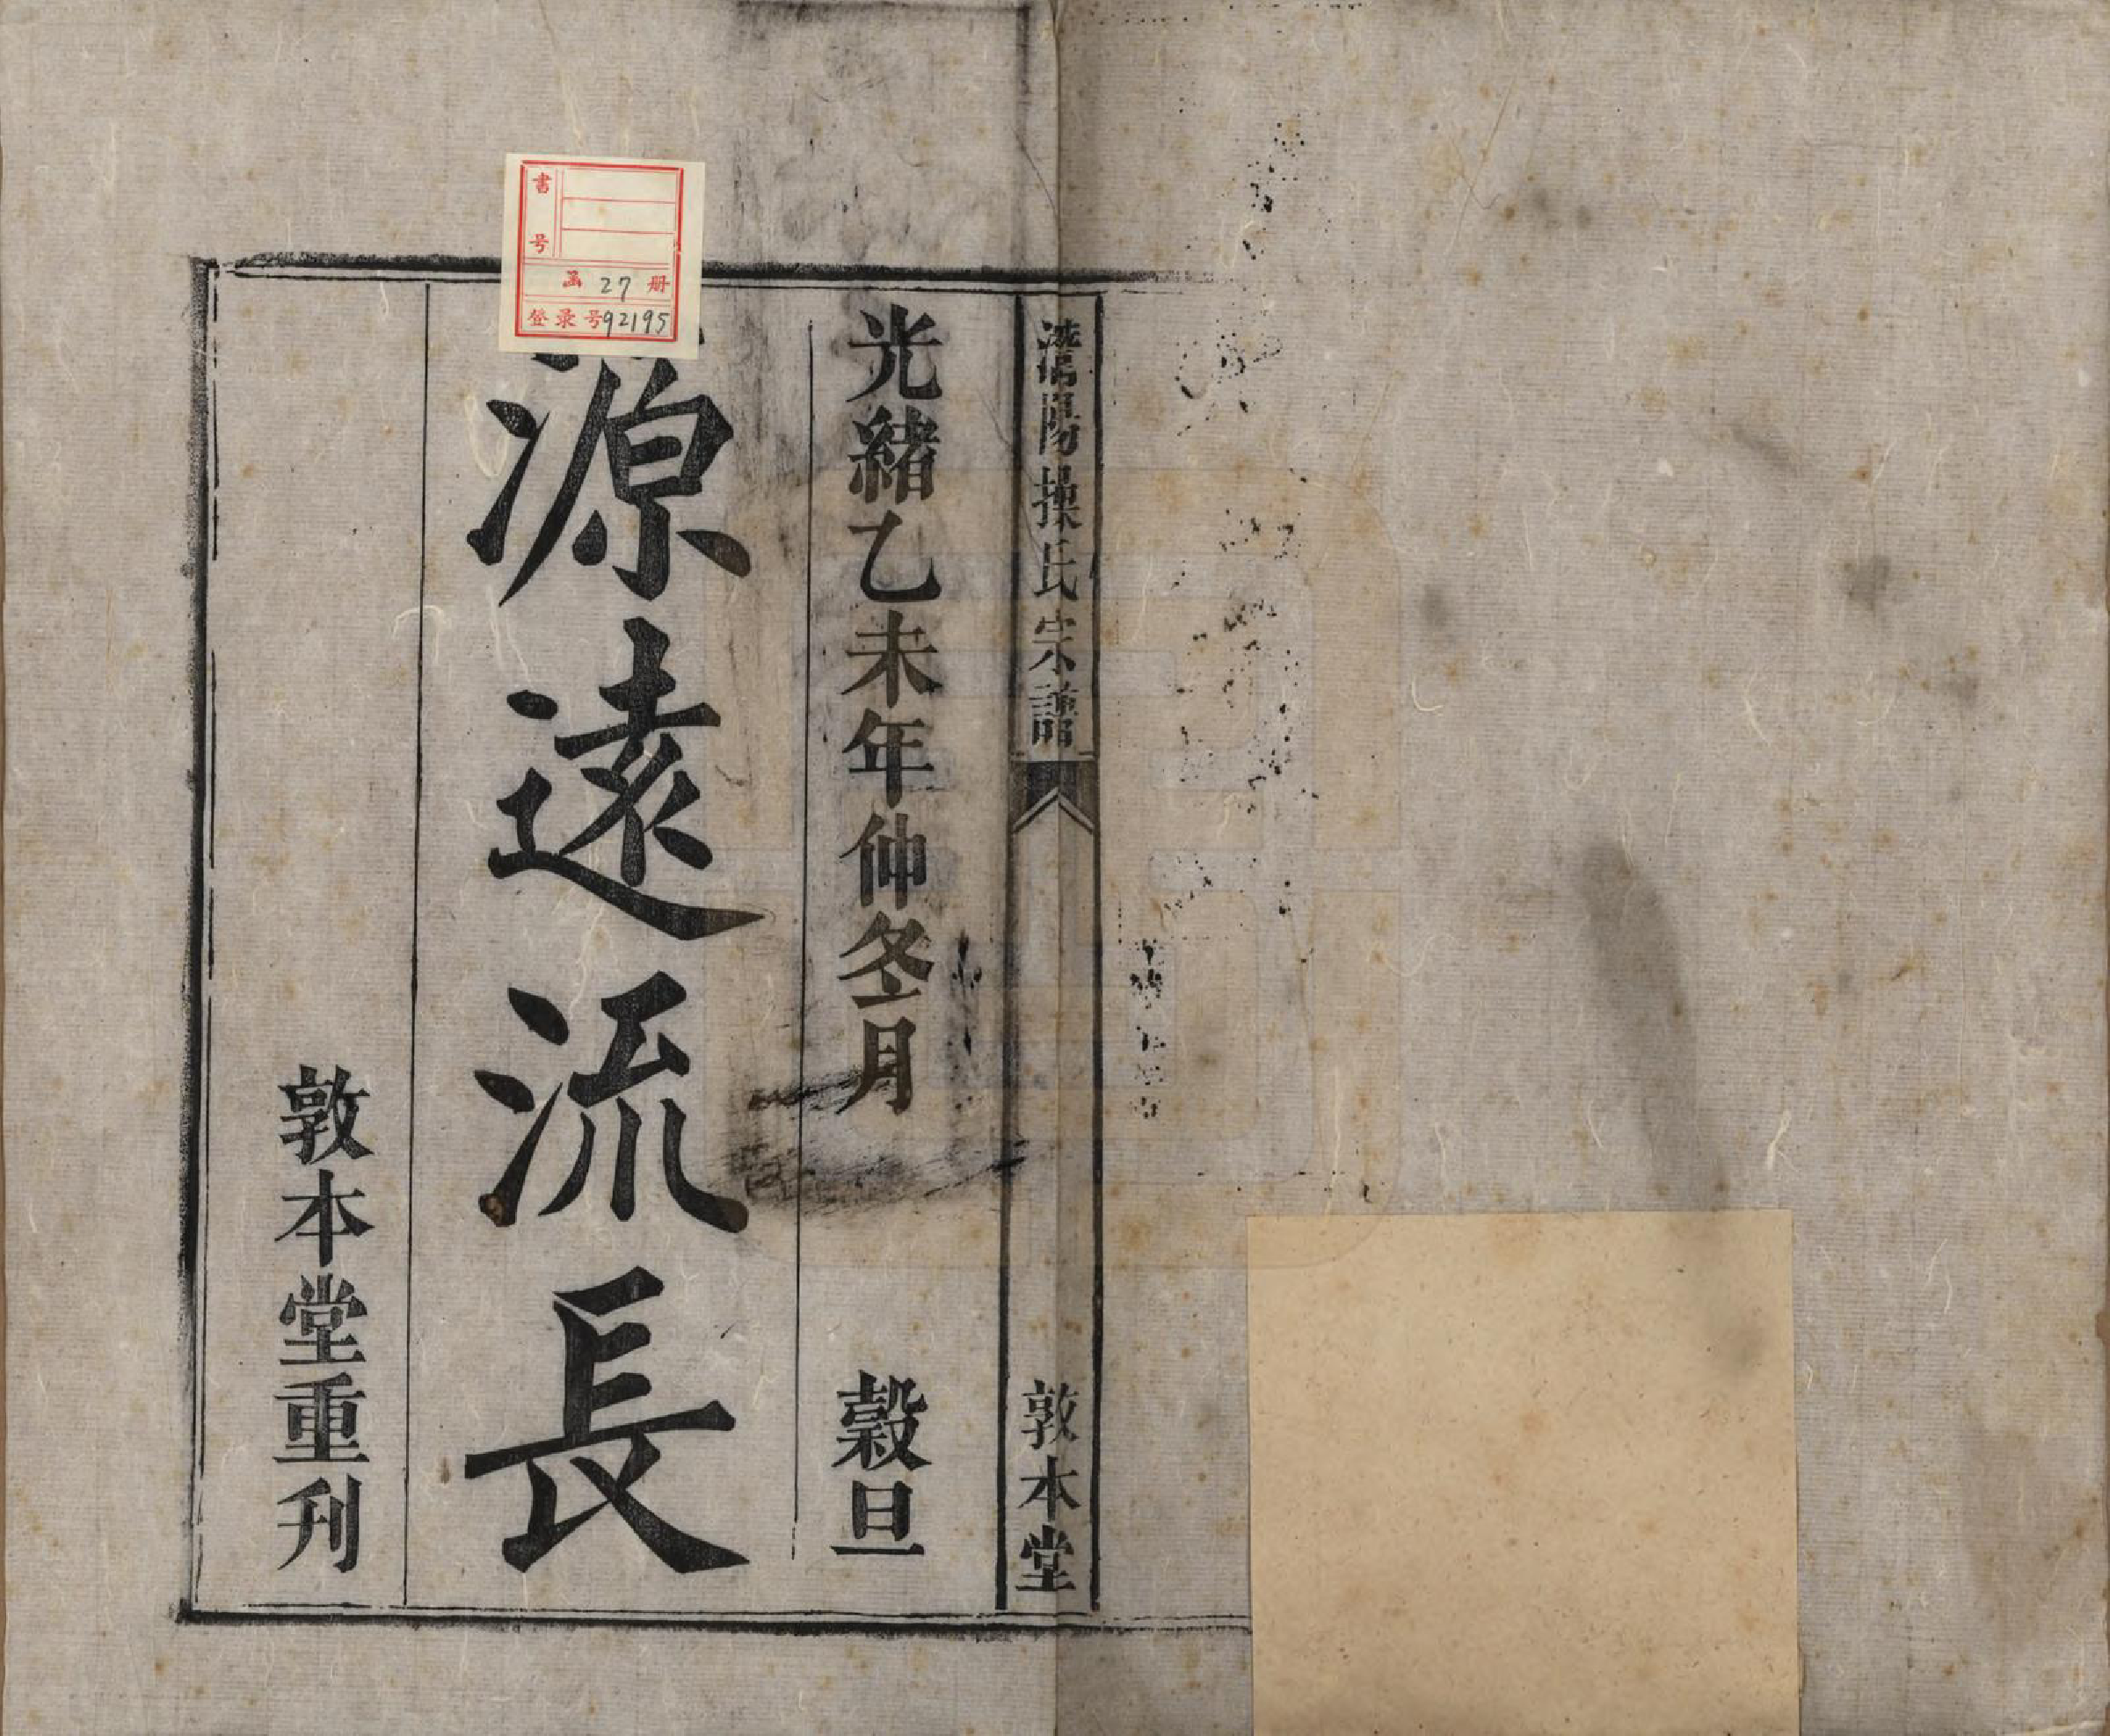 灊陽操氏宗譜
敦本堂
光緒乙未年仲冬月
穀旦
源遠流長
敦本堂重刊
書号
函 27 册
登录号92195